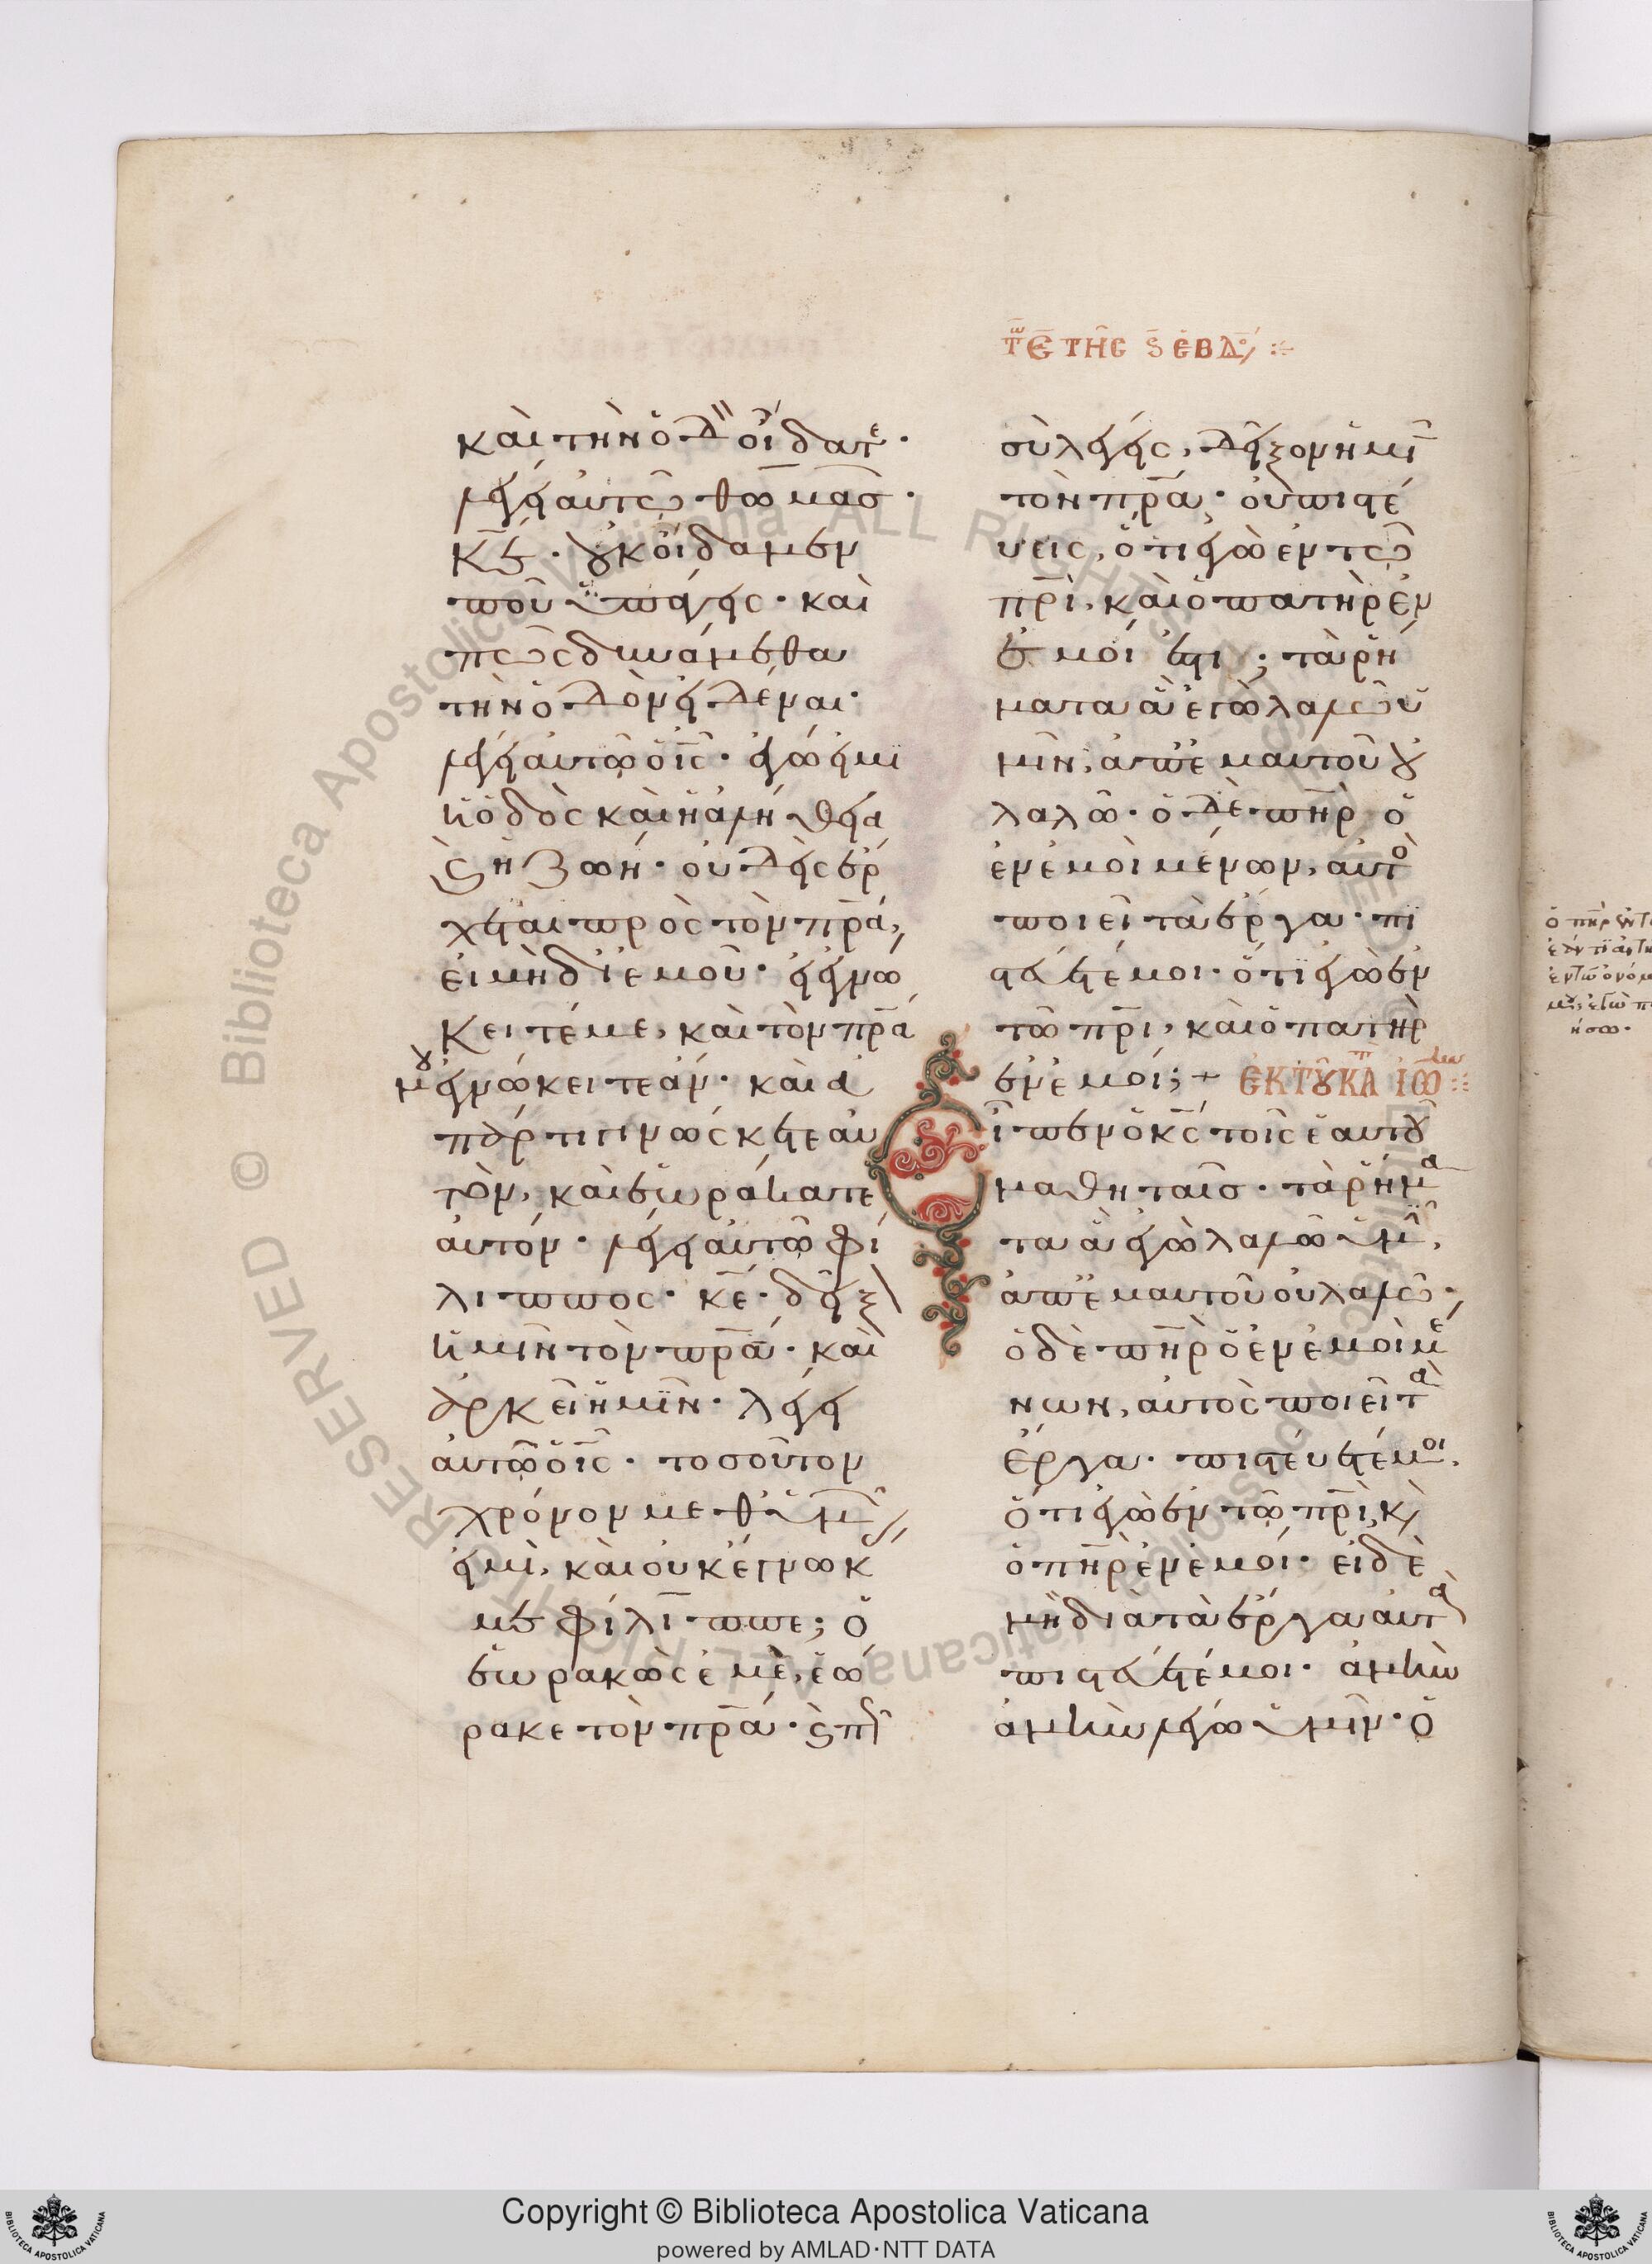 τῶ ε̅ τῆς ς̅ ἑβδο
καὶ τὴν ὁδὸν οἴδατε·
λέγει αὐτῶ θωμᾶσ·
κ̅ε̅· οὐκ οἴδαμεν
ποῦ ὑπάγεις· καὶ
πῶς δυνάμεθα
τὴν ὁδὸν εἰδέναι·
λέγει αὐτῶ ὁ ι̅ς̅· ἐγώ εἰμι
ἡ ὁδὸς καὶ ἡ ἀλήθεια
καὶ ἡ ζωή· οὐδεὶς ἔρ
χεται πρὸς τὸν π̅ρ̅α̅,
εἰ μὴ δι ἐμοῦ· εἰ ἐγνώ
κειτέ με, καὶ τὸν π̅ρ̅α̅
μου ἐγνώκειτε ἄν· καὶ ἀ
πάρτι γινώσκετε αὐ
τὸν, καὶ ἑωράκατε
αὐτόν· λέγει αὐτῶ φί
λιππος· κ̅ε̅· δεῖξ
ἡμῖν τὸν π̅ρ̅α̅· καὶ
ἀρκεῖ ἡμῖν· λέγει
αὐτῶ ὁ ι̅ς̅· τοσοῦτον
χρόνον μεθ ὑμῶν
εἰμὶ, καὶ οὐκ ἔγνωκ
με φίλιππε; ὁ
ἑωρακὼς ἐμὲ, ἑώ
ρακε τὸν π̅ρ̅α̅· καὶ πῶς
σὺ λέγεις, δεῖξον ἡμῖ
τὸν π̅ρ̅α̅· οὐ πιστε
ύεις, ὅτι ἐγὼ ἐν τῶ
π̅ρ̅ι̅, καὶ ὁ πατὴρ ἐν
ἐμοί ἐστι; τὰ ρή
ματα ἃ ἐγὼ λαλῶ ὑ
μῖν, ἀπ ἐμαυτοῦ οὐ
λαλῶ· ὁ δὲ π̅η̅ρ̅ ὁ
ἐν ἐμοὶ μένων, αὐτὸ
ποιεῖ τὰ ἔργα· πι
στεύετέ μοι· ὅτι ἐγὼ ἐν
τῶ π̅ρ̅ι̅, καὶ ὁ πατὴρ
ἐν ἐμοί; + ἐκ τοῦ κα̅τ ἰω̅
Εἶπεν ὁ κ̅ς̅ τοῖς ἑαυτοῦ
μαθηταῖσ· τὰ ρήμα
τα ἃ ἐγὼ λαλῶ ὑμῖ,
ἀπ ἐμαυτοῦ οὐ λαλῶ·
ὁ δὲ π̅η̅ρ̅ ὁ ἐν ἐμοὶ μέ
νων, αὐτὸς ποιεῖ τὰ
ἔργα· πιστεύετέ μοι.
ὅτι ἐγὼ ἐν τῶ π̅ρ̅ι̅, κὶ
ὁ π̅η̅ρ̅ ἐν ἐμοί· εἰ δὲ
μὴ διὰ τὰ ἔργα αὐτὰ
πιστεύετέ μοι· ἀμὴν
ἀμὴν λέγω ὑμῖν· ὁ
Copyright © Biblioteca Apostolica Vaticana
powered by AMLAD·NTT DATA